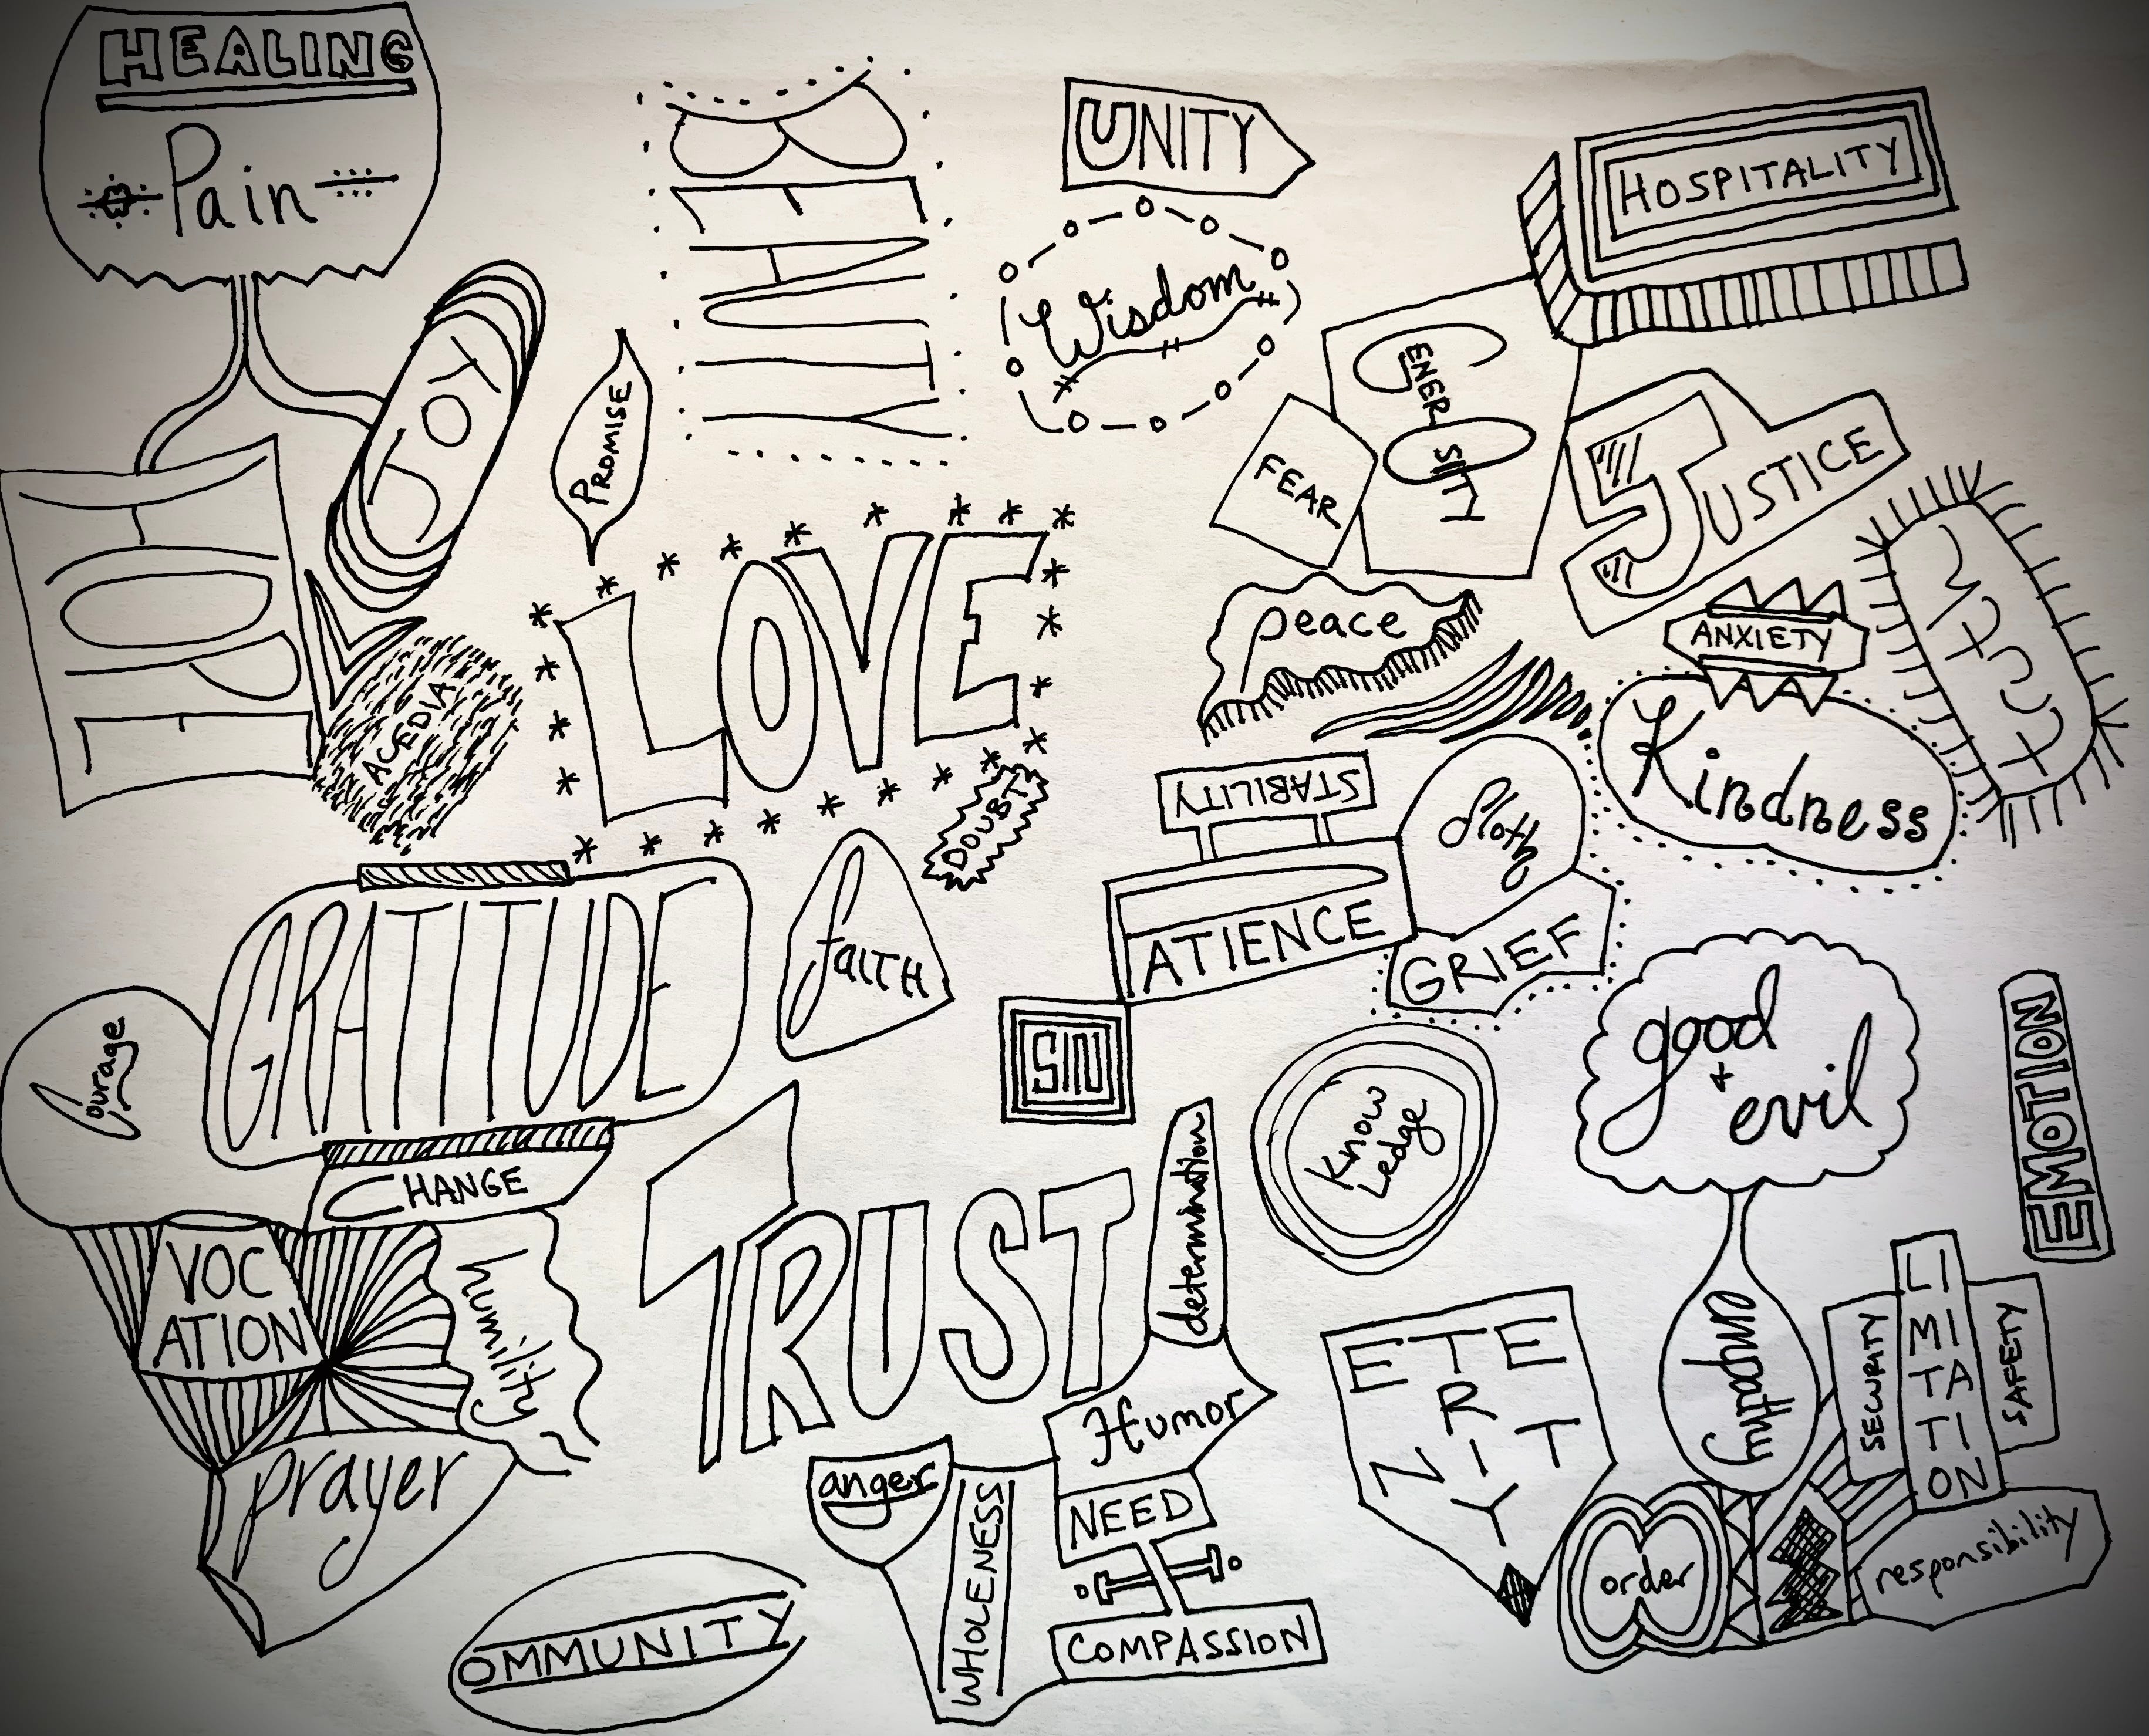 HEALING
Pain
JOY
HOPE
PROMISE
BEAUTY
UNITY
Wisdom
HOSPITALITY
GENEROSITY
FEAR
JUSTICE
ANXIETY
Kindness
peace
ACEDIA
LOVE
DOUBT
STABILITY
Sloth
PATIENCE
GRIEF
GRATITUDE
FAITH
SIN
Courage
CHANGE
VOC
ATION
humility
prayer
TRUST
determination
Know
Ledge
good
+
evil
EMOTION
Humor
anger
WHOLENESS
NEED
COMPASSION
COMMUNITY
ETE
R
NIT
Y
empathy
SECURITY
LI
MI
TA
TI
ON
SAFETY
order
responsibility